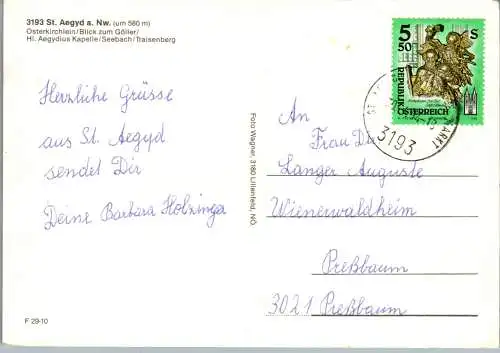 3193 St. Aegyd a. Nw. (um 580 m)
Osterkirchlein/Blick zum Göller/
Hl. Aegydius Kapelle/Seebach/Traisenberg
Herzliche Grüsse
aus St. Aegyd
sendet Dir
Deine Barbara Holzinger
F 29-10
Foto Wagner, 3180 Lilienfeld, NÖ
5 50 S
REPUBLIK
ÖSTERREICH
3193
An
Frau
Langer Auguste
Wienerwaldheim
Preßbaum
3021 Preßbaum